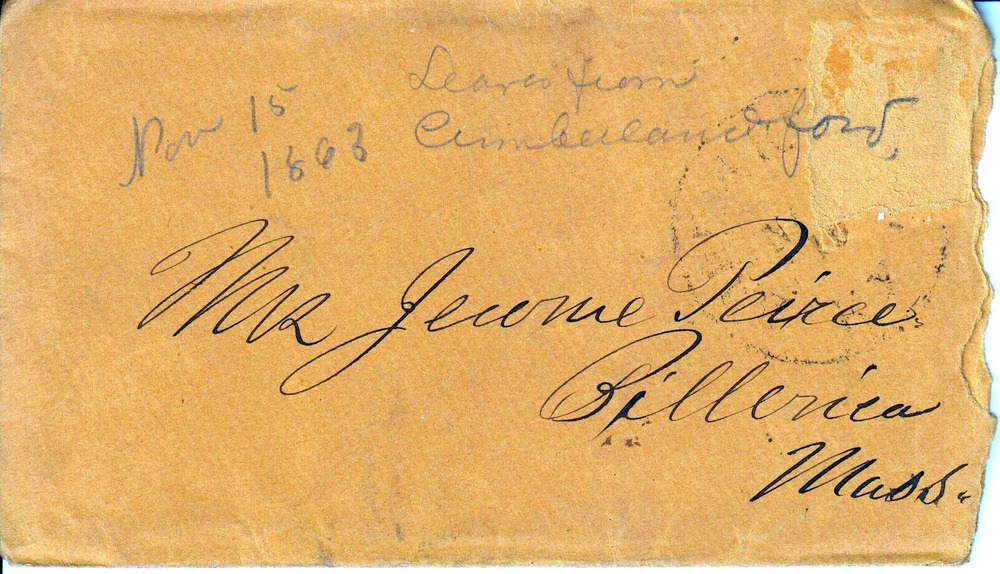 Leaves from
Nov 15 Cumberland ford,
1863
Mrs Jerome Peirce
Billerica
Mass.